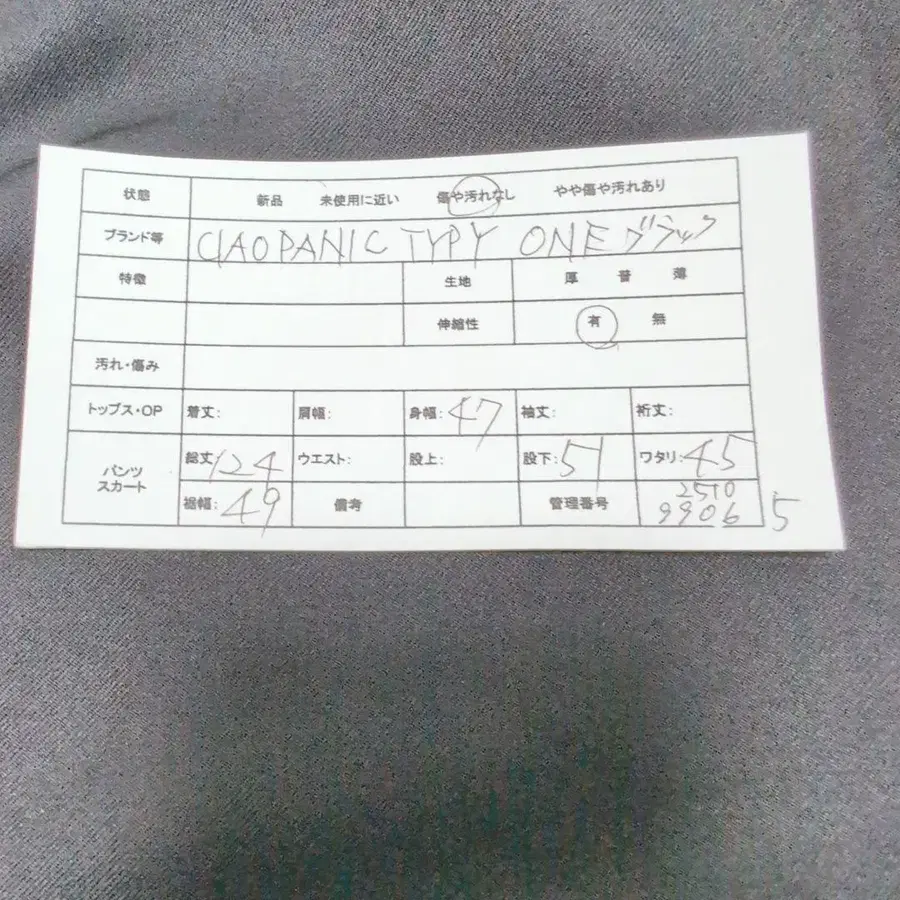 状態 新品 未使用に近い 傷や汚れなし やや傷や汚れあり
ブランド等 CIAOPANIC TYPY ONE ブラック
特徴 生地 厚 普 薄
伸縮性 有 無
汚れ・傷み
トップス・OP 着丈: 肩幅: 身幅: 47 袖丈: 裄丈:
パンツ スカート 総丈: 124 ウエスト: 股上: 股下: 51 ワタリ: 45
裾幅: 49 備考 管理番号 2510
9906 5